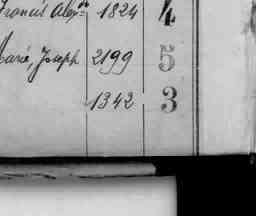 Francis Alex^dre 1824 4
Marie, Joseph 2199 5
1342 3